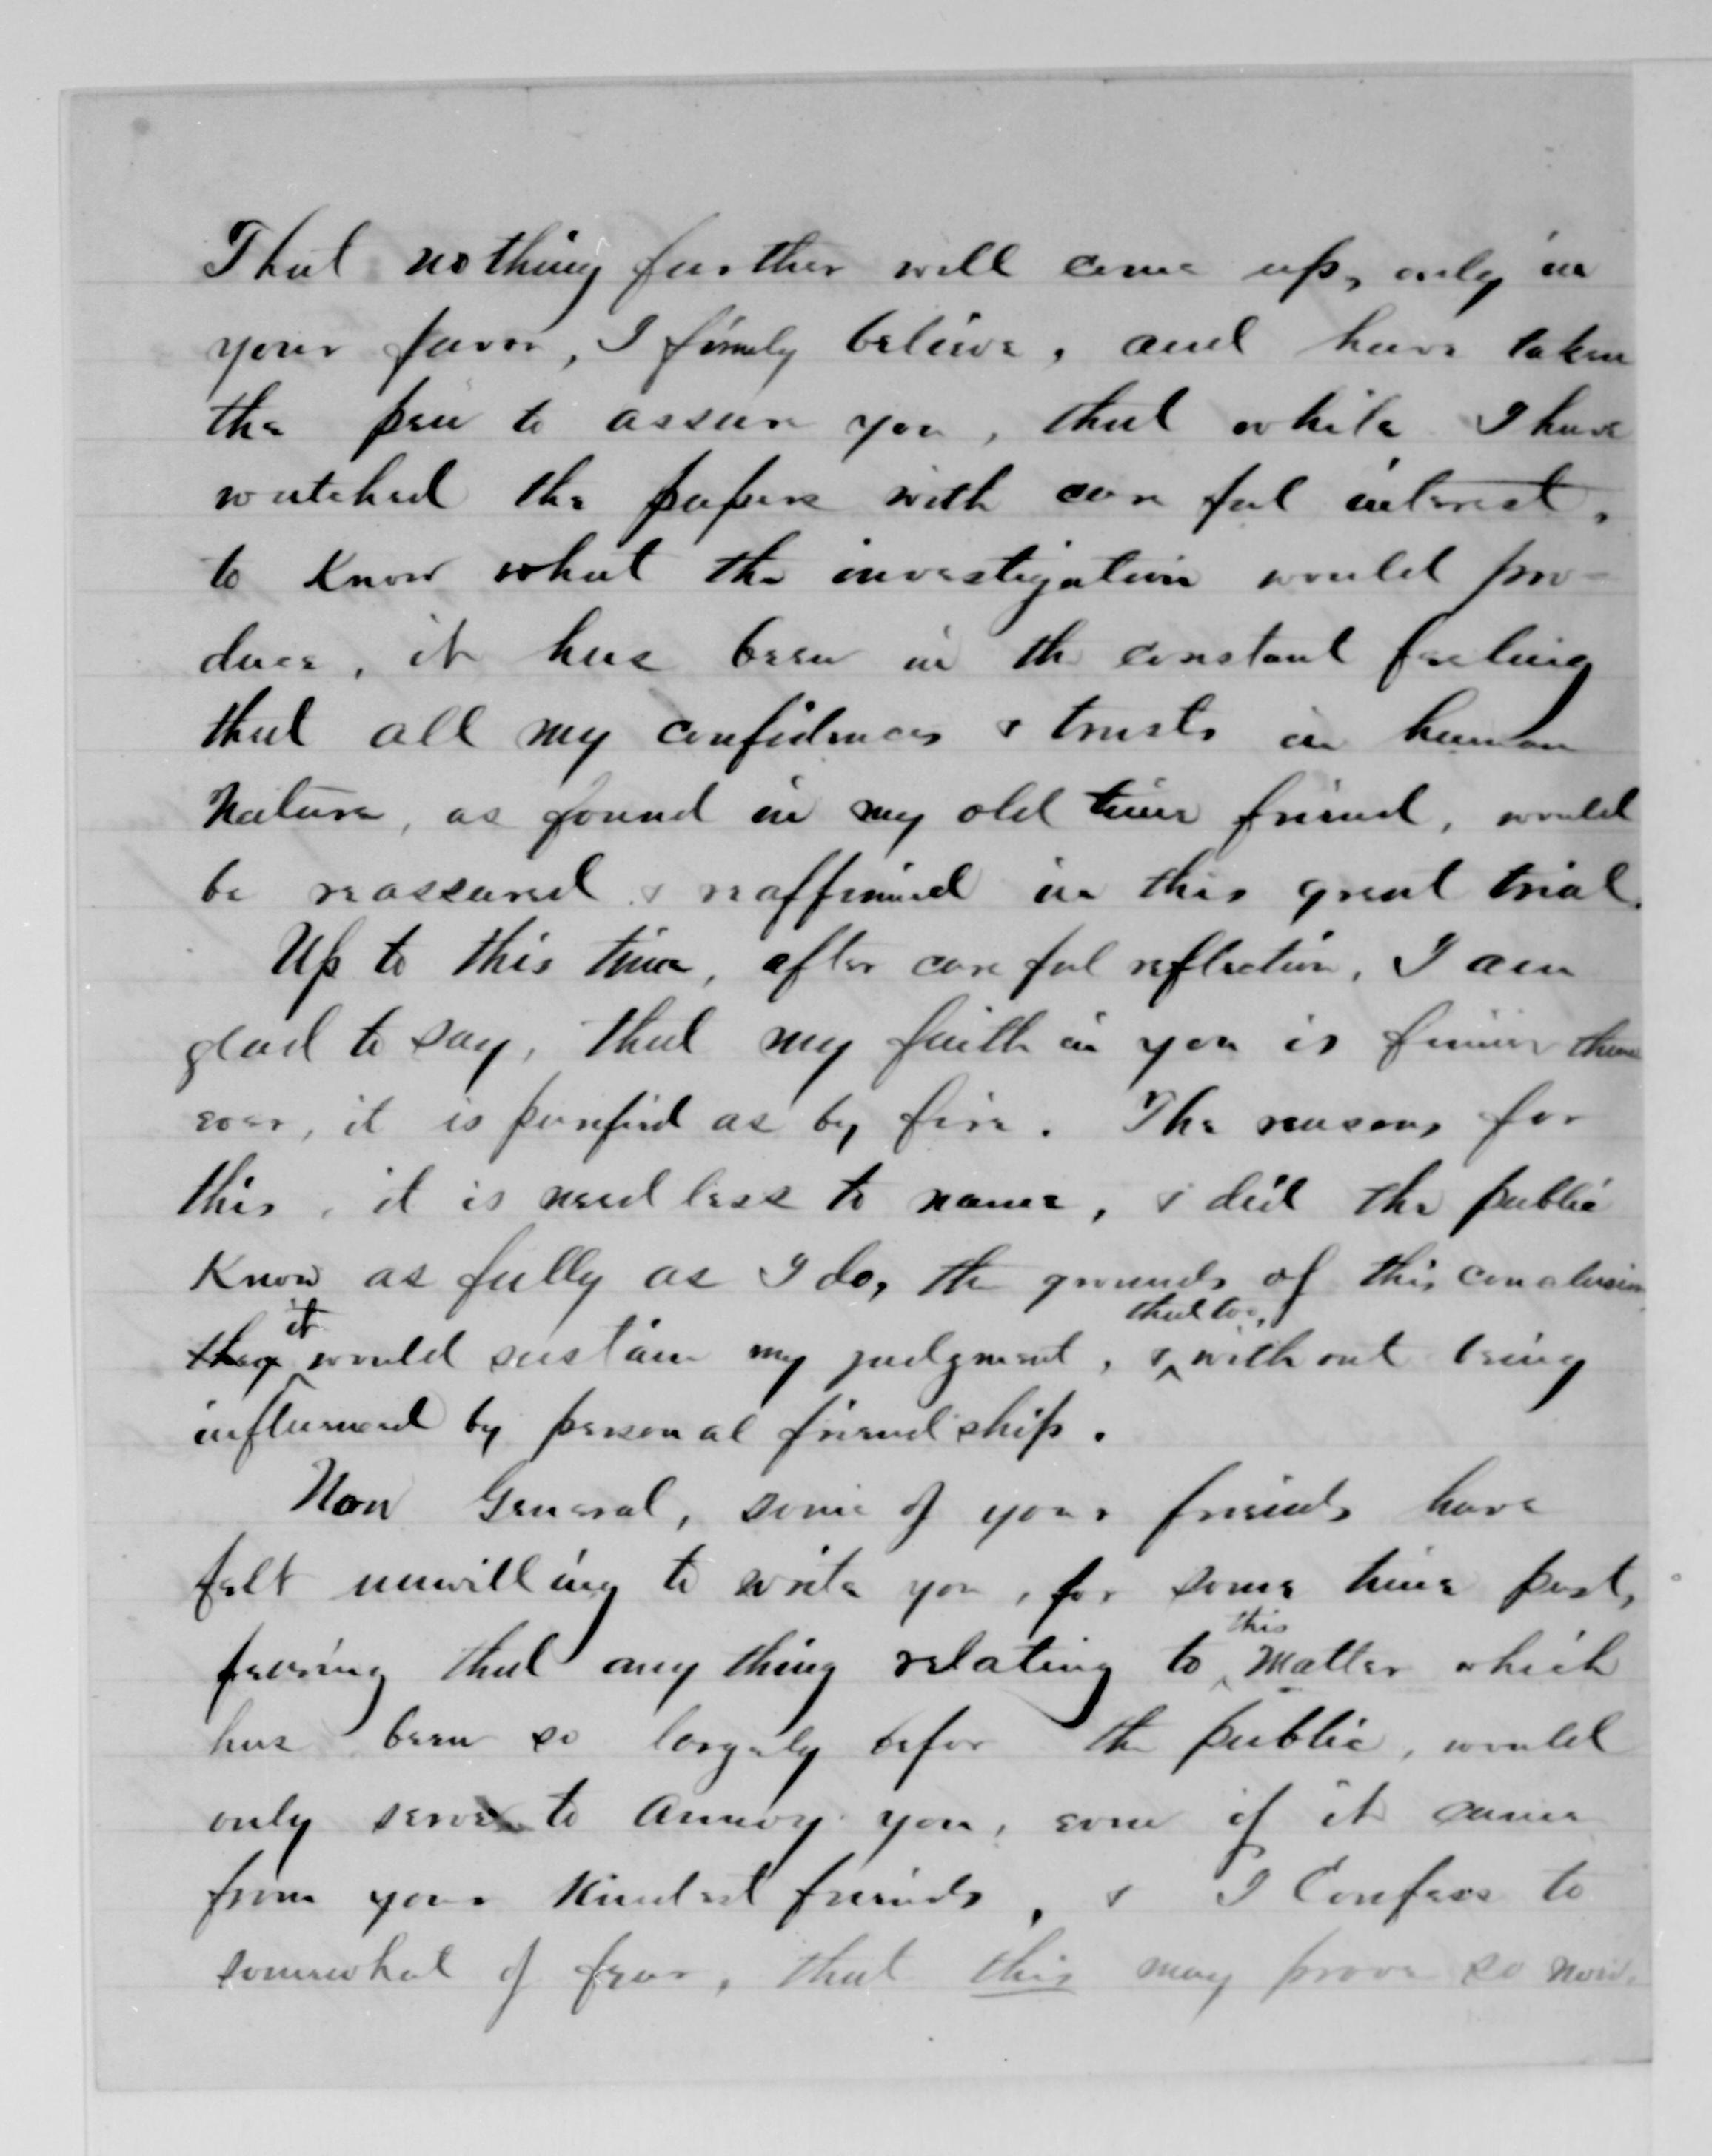 That nothing further will come up, only in
your favor, I firmly believe, and have taken
the pen to assure you, that while I have
watched the papers with care ful interest,
to Know what the investigation would pro-
duce, it has been in the constant feeling
that all my confidences & trusts in human
Nature, as found in my old time friend, would
be reassured & reaffirmed in this great trial.
Up to this time, after care ful reflection, I am
glad to say, that my faith in you is firmer than
ever, it is purified as by fire. The reasons for
this, it is need less to name, & did the public
Know as fully as I do, the grounds of this conclusion,
they it would sustain my judgment, & that too, with out being
influenced by personal friend ship.
Now General, some of your friends have
felt unwilling to write you, for some time past,
fearing that any thing relating to this Matter which
has been so largely befor the public, would
only serve to annoy you, even if it came
from your Kindest friends, & I Confess to
somewhat of fear, that this may prove so now.